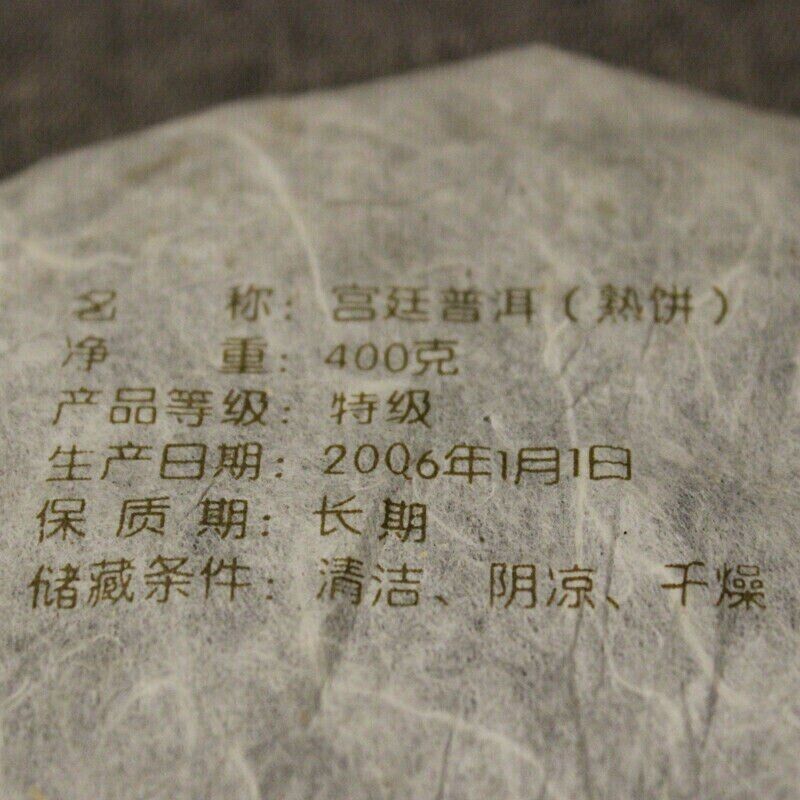 名 称：宫廷普洱（熟饼）
净 重：400克
产品等级：特级
生产日期：2006年1月1日
保质期：长期
储藏条件：清洁、阴凉、干燥